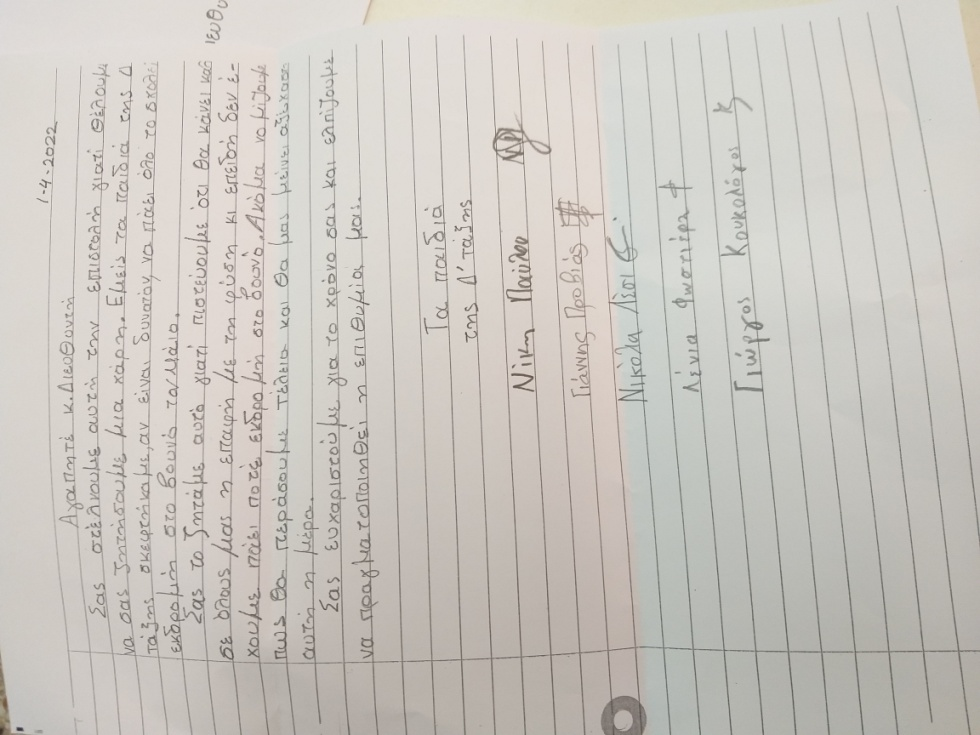 1-4-2022
Αγαπητέ κ. Διευθυντή
Σας στέλνουμε αυτή την επιστολή γιατί θέλουμε
να σας ζητήσουμε μια χάρη. Εμείς τα παιδιά της Δ
τάξης σκεφτήκαμε, αν είναι δυνατόν, να πάει όλο το σχολεί
εκδρομή στο βουνό το Μάιο.
Σας το ζητάμε αυτό γιατί πιστεύουμε ότι θα κάνει καλ
σε όλους μας η επαφή με τη φύση κι επειδή δεν έ-
χουμε πάει ποτέ εκδρομή στο βουνό. Ακόμα νομίζουμε
πως θα περάσουμε τέλεια και θα μας μείνει αξέχαστη
αυτή η μέρα.
Σας ευχαριστούμε για το χρόνο σας και ελπίζουμε
να πραγματοποιηθεί η επιθυμία μας.
Τα παιδιά
της Δ' τάξης
Νίκη Παύλου
Γιάννης Προβιάς
Νικόλα
Λένια Φωστιέρα
Γιώργος Κουκολόγος
ιευθυ